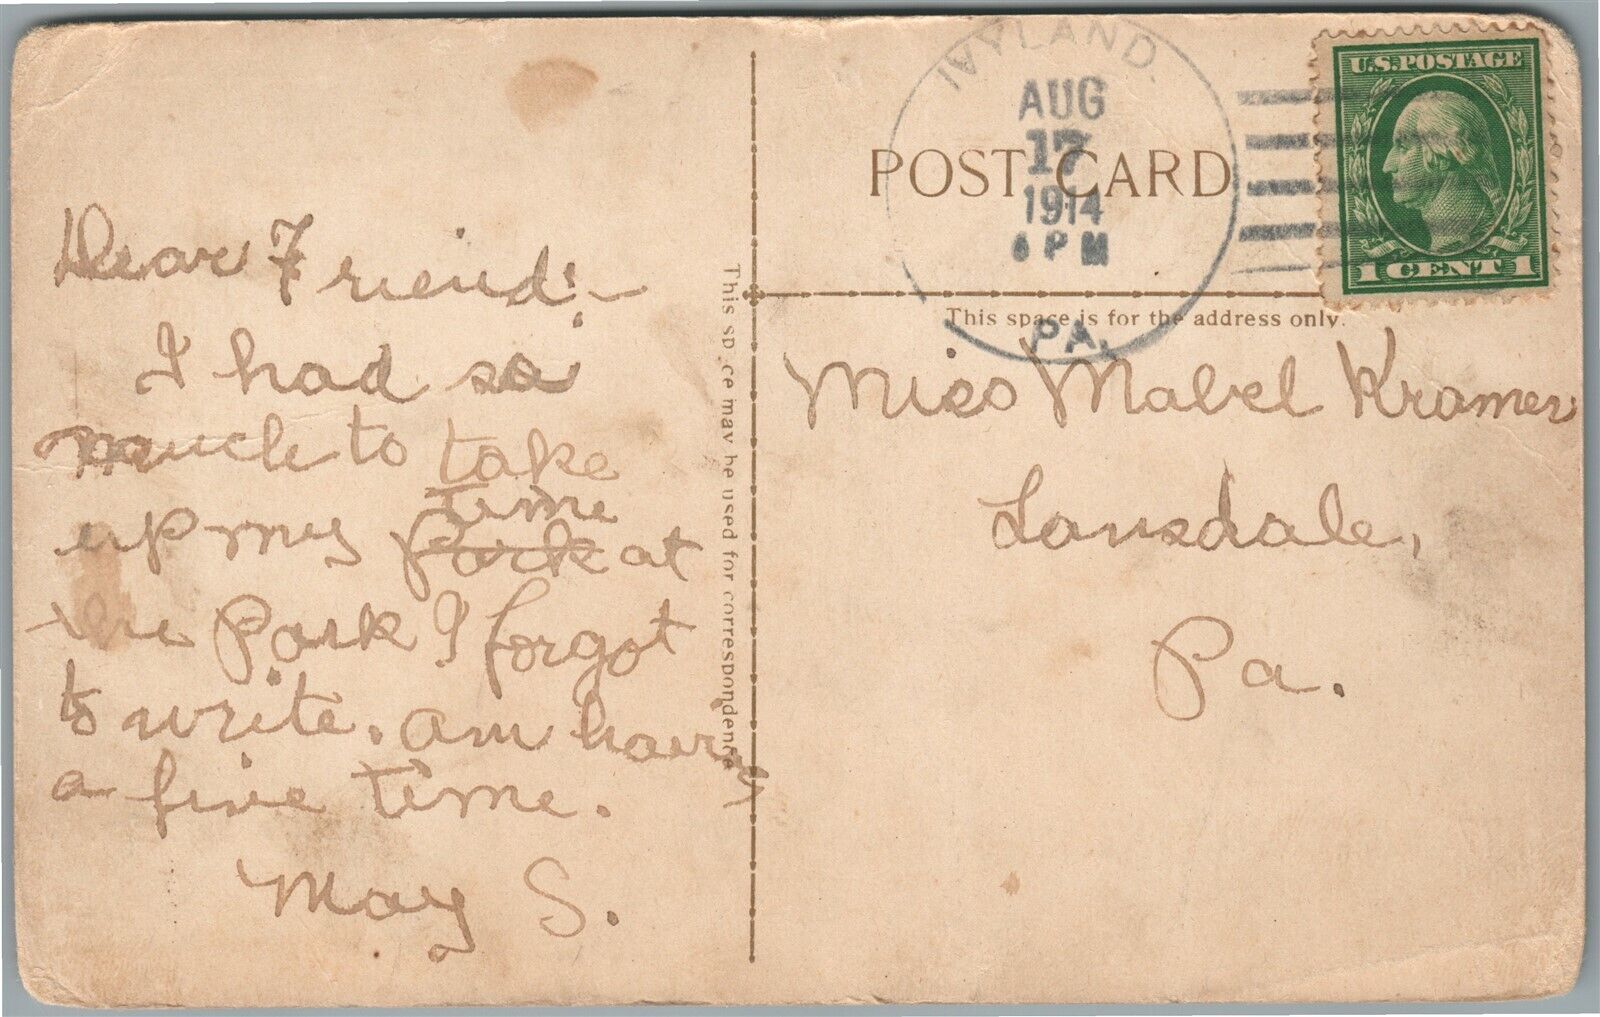 Dear Friend:-
I had so
much to take
time
up my Park at
the Park I forgot
to write. am having
a fine time.
May S.
This sp ce may be used for correspondence
POST CARD
This space is for the address only.
IVYLAND.
AUG
17
1914
PM
PA.
U.S. POSTAGE
1 CENT 1
Miss Mabel Kramer
Lansdale,
Pa.